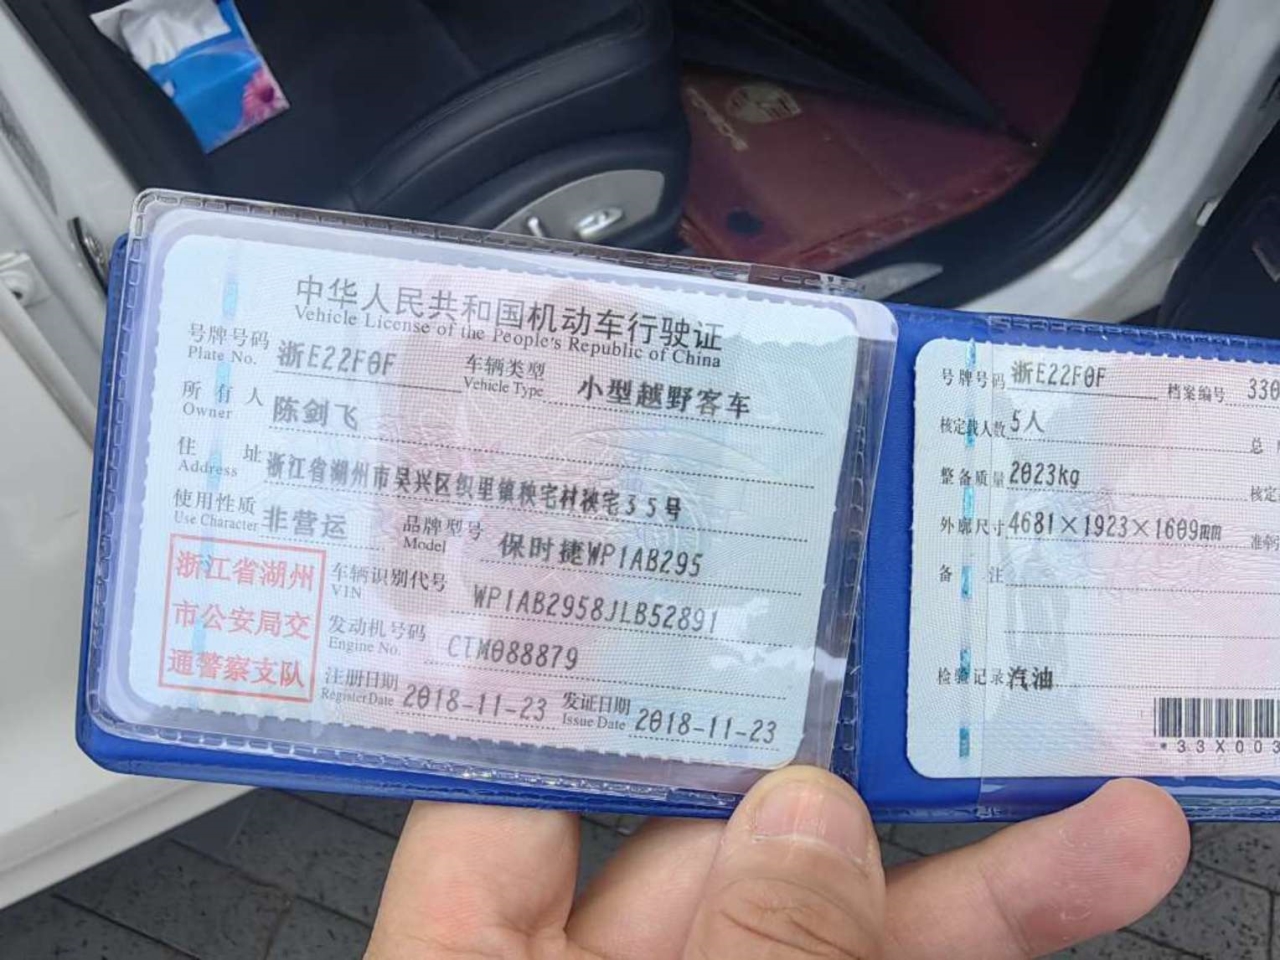 中华人民共和国机动车行驶证
Vehicle License of the People's Republic of China
号牌号码 浙E22F0F 车辆类型 小型越野客车
Plate No. Vehicle Type
所有人 陈剑飞
Owner
住址 浙江省湖州市吴兴区织里镇秧宅村秧宅35号
Address
使用性质 非营运 品牌型号 保时捷WP1AB295
Use Character Model
浙江省湖州
市公安局交
通警察支队
车辆识别代号 WP1AB2958JLB52891
VIN
发动机号码 CTM088879
Engine No.
注册日期 2018-11-23 发证日期 2018-11-23
Register Date Issue Date
号牌号码 浙E22F0F 档案编号 330
核定载人数 5人 总
整备质量 2023kg 核定
外廓尺寸 4681×1923×1609mm 准牵
备注
检验记录 汽油
*33X003